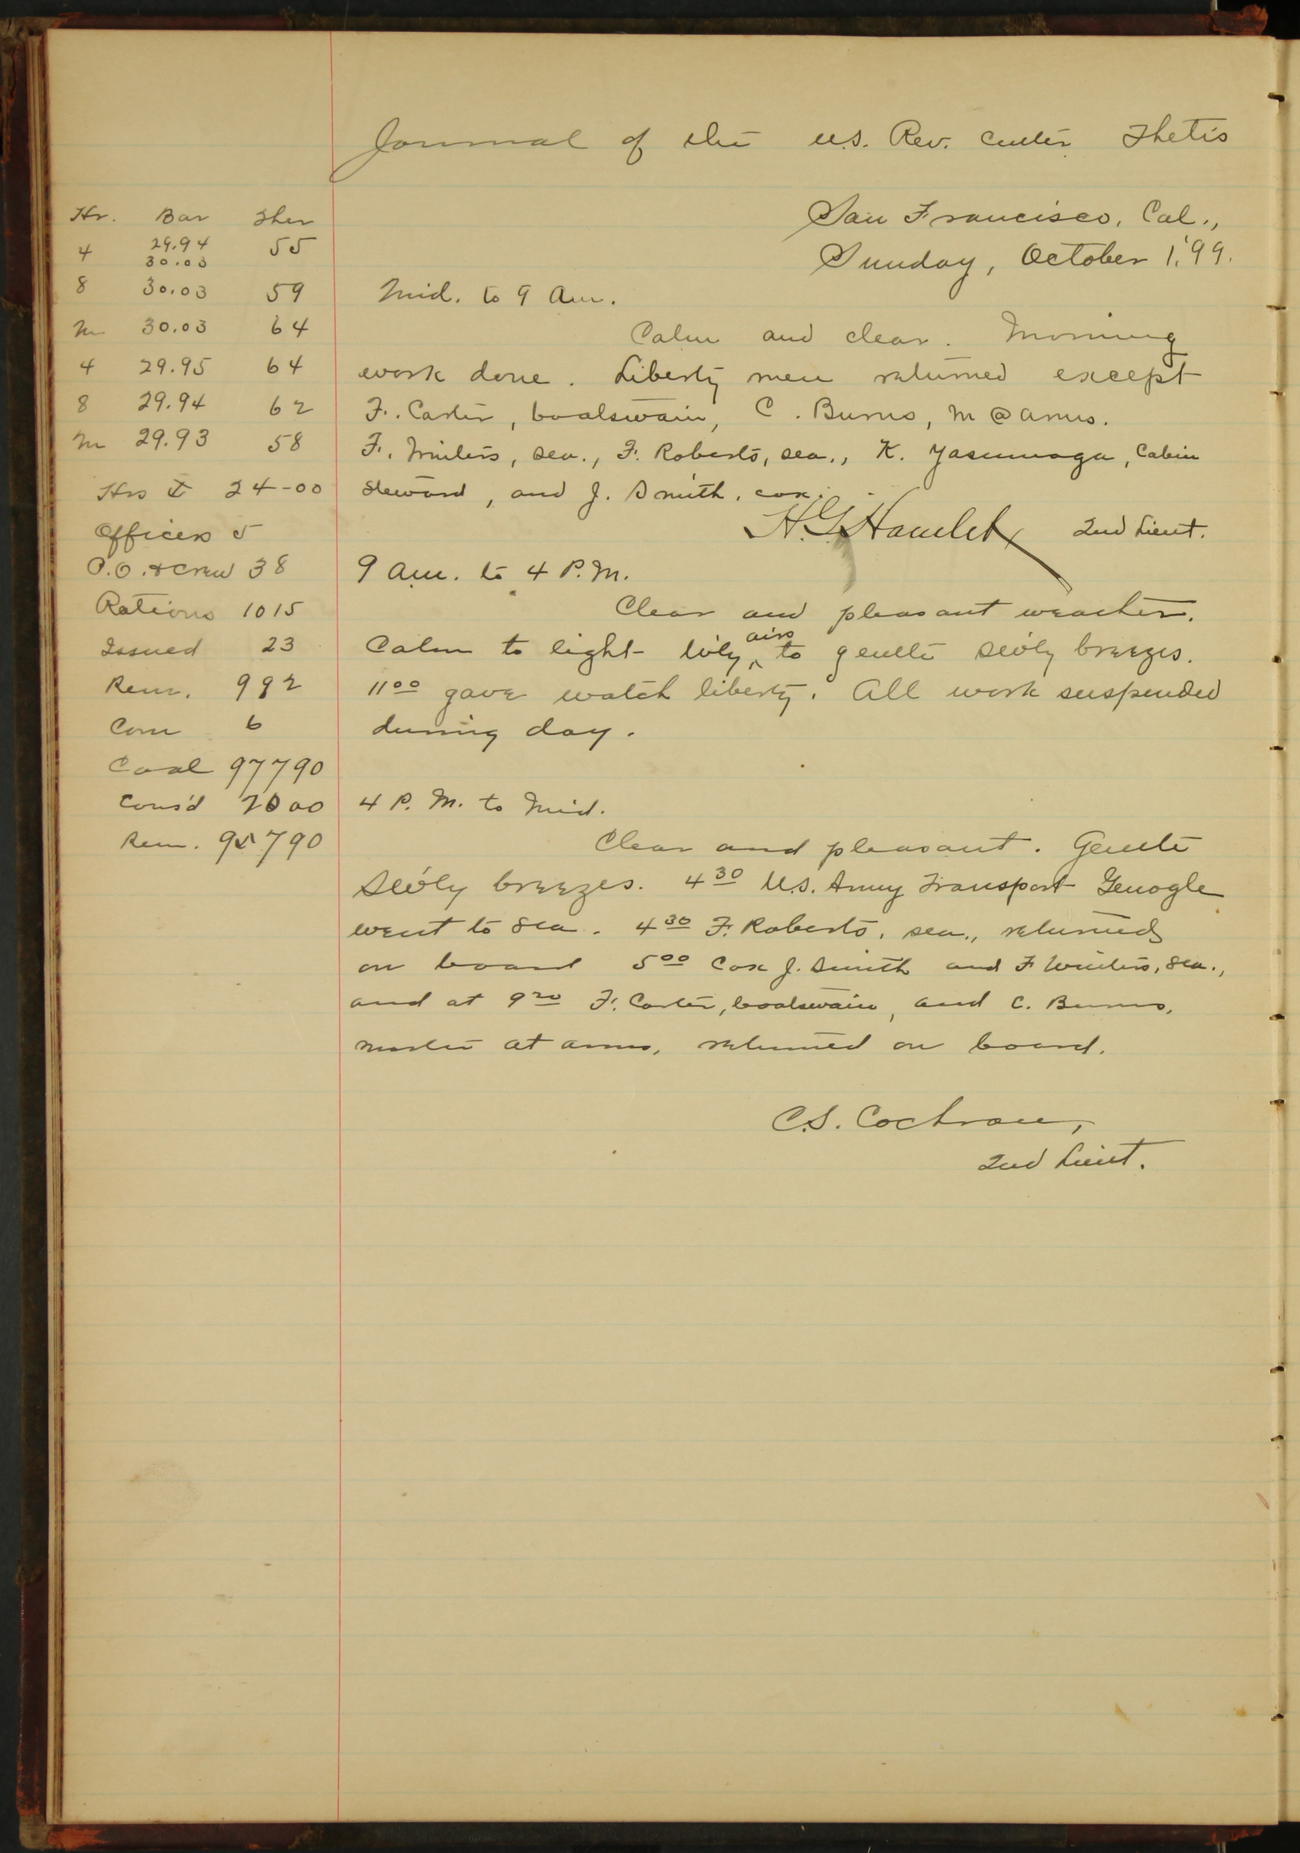 Journal of the U.S. Rev. Cutter Thetis
San Francisco, Cal.,
Sunday, October 1, '99.
Hr. Bar Ther
4 29.94 55
30.03
8 30.03 59
M 30.03 64
4 29.95 64
8 29.94 62
M 29.93 58
Hrs ⚓ 24-00
Officers 5
P.O. & Crew 38
Rations 1015
Issued 23
Rem. 992
Com 6
Coal 97790
Cons'd 2000
Rem. 95790
Mid. to 9 Am.
Calm and clear. Morning
work done. Liberty men returned except
F. Carter, boatswain, C. Burns, M @ arms.
F. Winters, sea., F. Roberts, sea., K. Yasunaga, Cabin
steward, and J. Smith, cox.
H.G. Hamlet 2nd Lieut.
9 am. to 4 P.M.
Clear and pleasant weather.
Calm to light W'ly airs to gentle SW'ly breezes.
11 00 gave watch liberty. All work suspended
during day.
4 P.M. to Mid.
Clear and pleasant. Gentle
SW'ly breezes. 4 30 U.S. Army Transport
went to sea. 4 30 F. Roberts, sea., returned
on board 5 00 Cox J. Smith and F Winters, sea.,
and at 9 20 F. Carter, boatswain, and C. Burns,
master at arms, returned on board.
C.S. Cochran,
2nd Lieut.